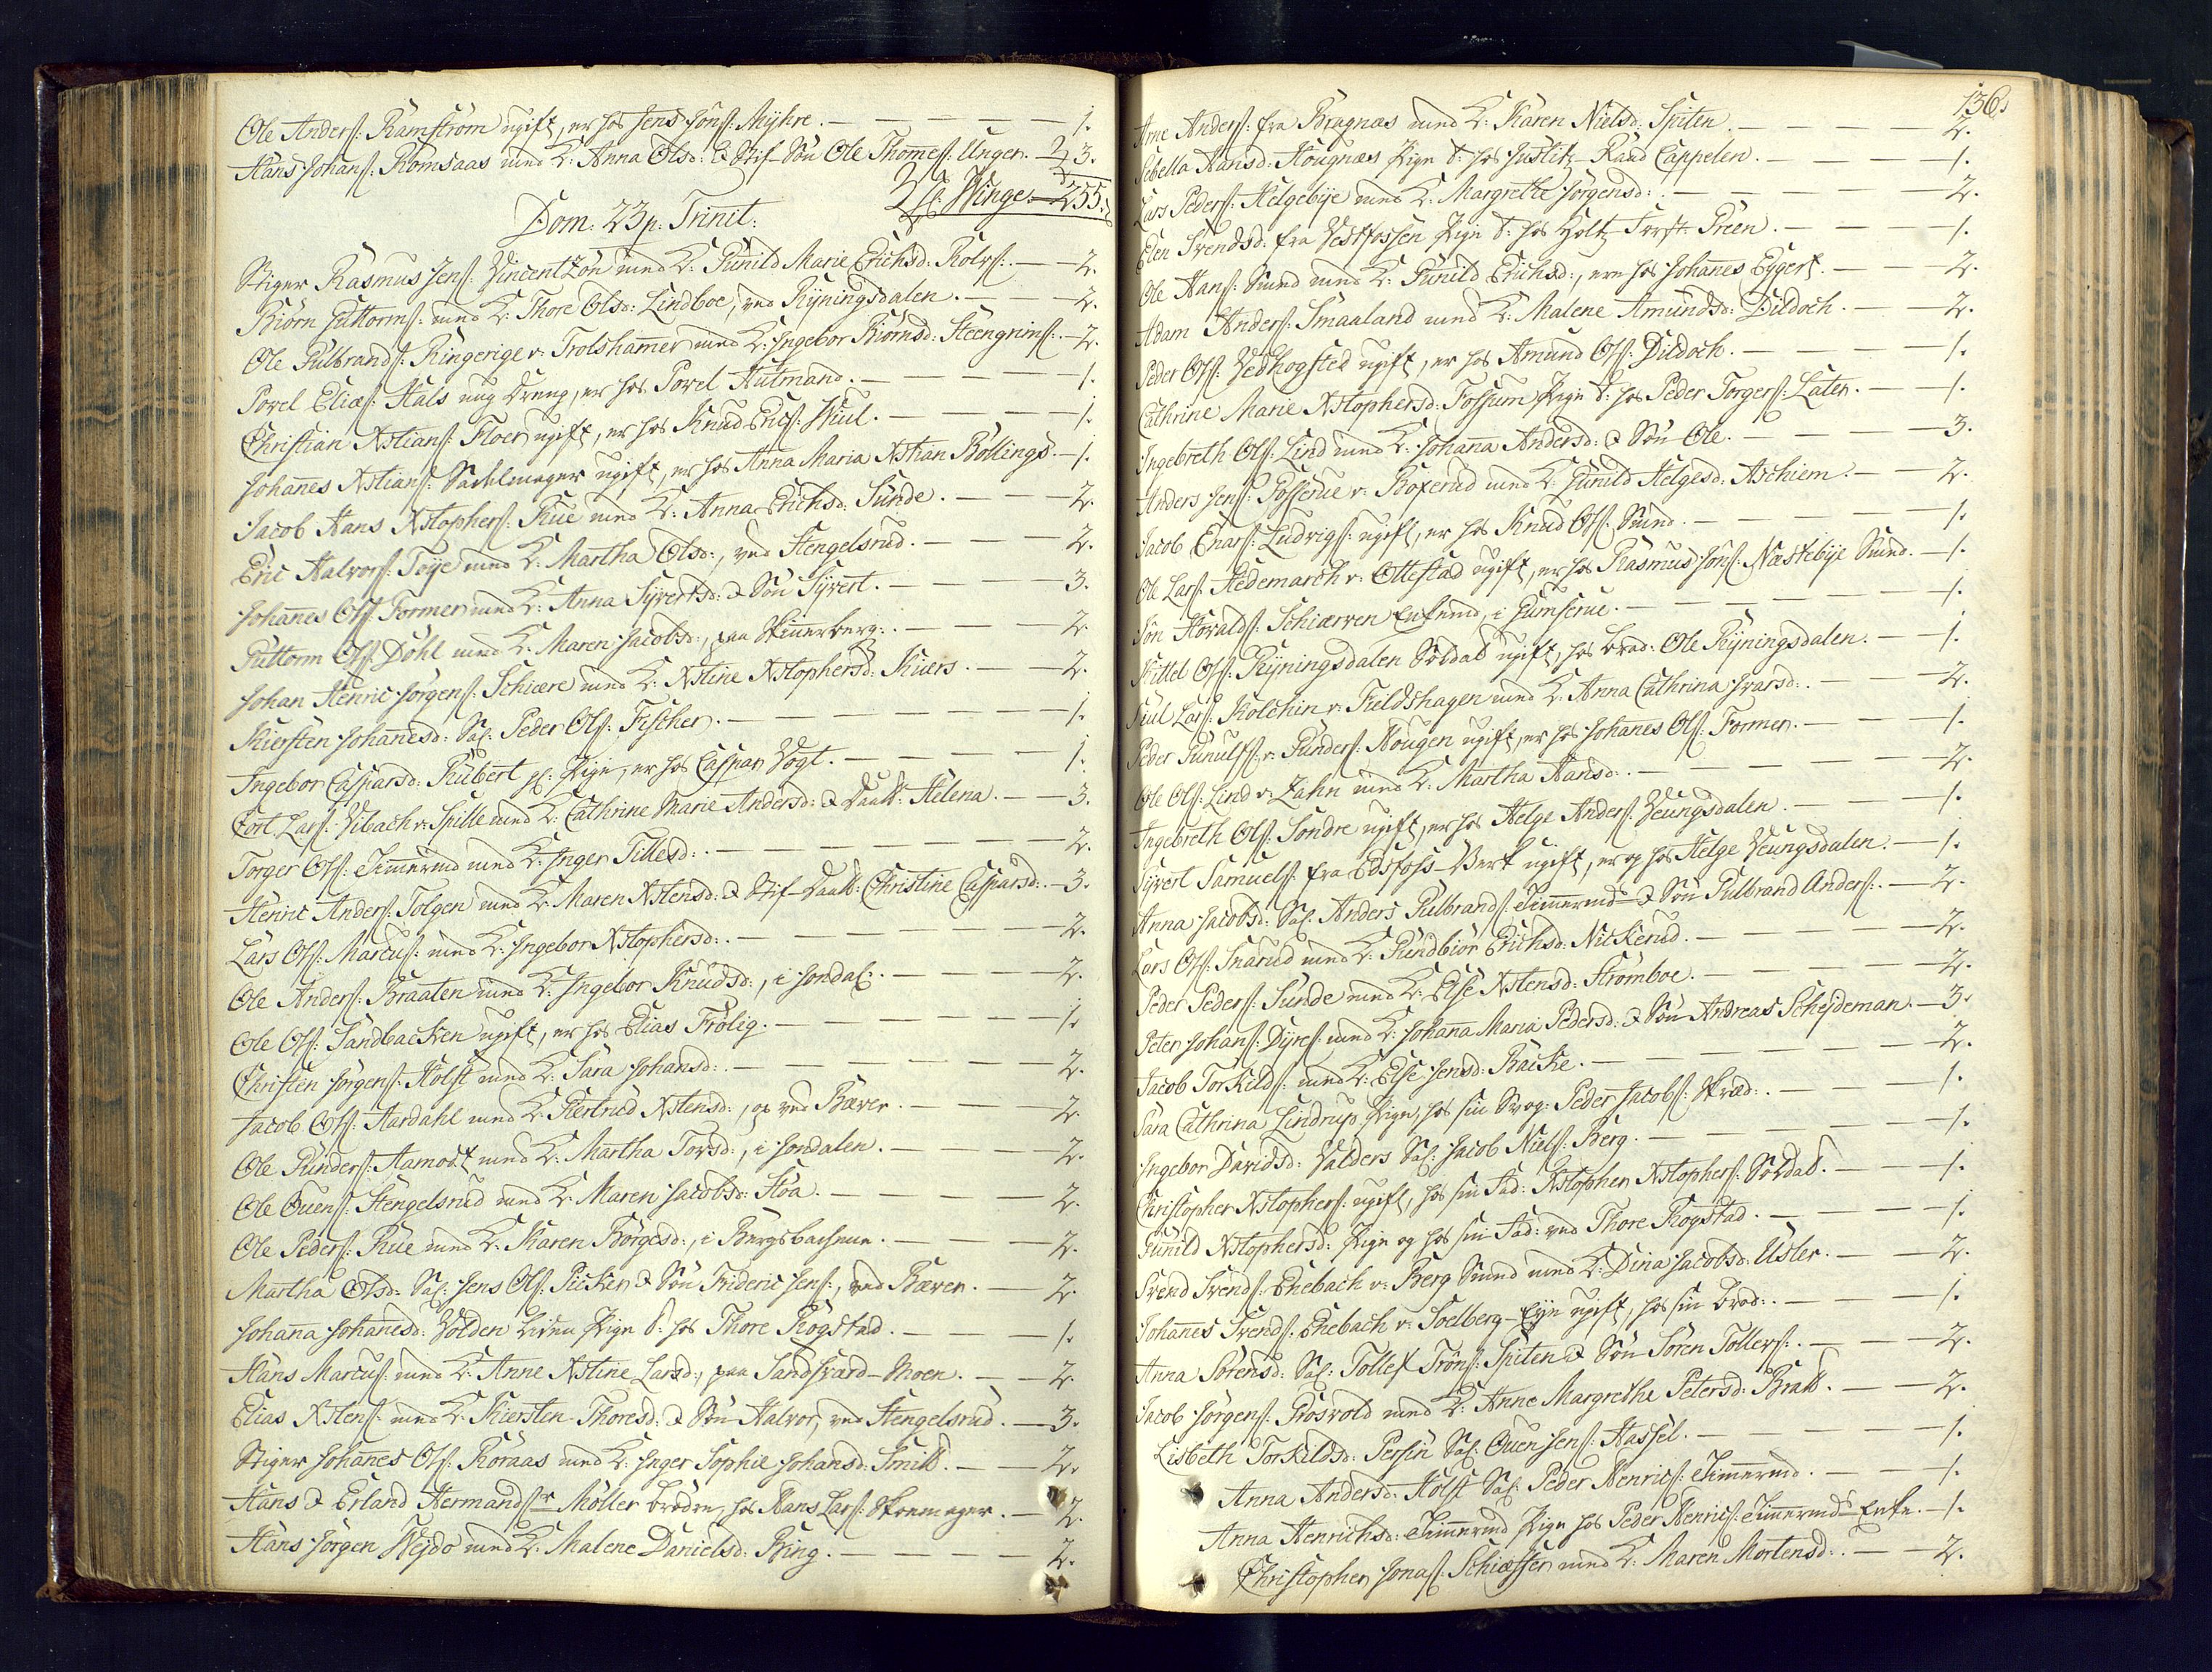 Ole Anders: Ramström ugift, er hos Jens Jöns: Myhre. — 1.
Hans Johans: Romsaas med K: Anna Olsd: & Stif-Sön Ole Thomes: Unger. — 3.
Hr: Winge — 255.
Dom: 23 p: Trinit:
Stiger Rasmus Jens: Vincentzön med K: Gunild Marie Erichsd: Rolvs: — 2.
Biörn Guttorms: med K: Thore Olsd: Lindboe, ved Ryningsdalen. — 2.
Ole Gulbrands: Ringerige v: Trolshamer med K: Ingebor Biörnsd: Steengrims: — 2.
Povel Elias: Hals ung Dreng, er hos Povel Hutmand. — 1.
Christian Xstians: Floer ugift, er hos Knud Erics: Hiul. — 1.
Johanes Xstians: Sadelmager ugift, er hos Anna Maria Xstian Böllings. — 1.
Jacob Hans Xstophers: Rue med K: Anna Erichsd: Sunde. — 2.
Eric Halvors: Teye med K: Martha Olsd:, ved Stengelsrud. — 2.
Johanes Ols: Former med K: Anna Syvertsd: & Sön Syvert. — 3.
Guttorm Ols: Döhl med K: Maren Jacobsd:, paa Skinerberg: — 2.
Johan Henric Jörgens: Schiære med K: Xstine Xstophersd: Kuers. — 2.
Kiersten Johanesd: Sal: Peder Ols: Fischer. — 1.
Ingebor Caspersd: Kubert gl: Pige, er hos Caspar Vogt. — 1.
Cort Lars: Vibach v: Spille med K: Cathrine Marie Andersd: & Datt: Helena. — 3.
Torger Ols: Timermd med K: Inger Tillesd: — 2.
Henric Anders: Tolgen med K: Maren Xstensd: & Stif-Datt: Christine Caspersd: — 3.
Lars Ols: Marcus: med K: Ingebor Xstophersd: — 2.
Ole Anders: Braaten med K: Ingebor Knudsd:, i Jondal: — 2.
Ole Ols: Sandbacken ugift, er hos Elias Frölig. — 1.
Christen Jörgens: Holst med K: Sara Johansd: — 2.
Jacob Ols: Aardahl med K: Giertrud Xstensd:, op ved Bæver. — 2.
Ole Gunders: Aamodt med K: Martha Torsd:, i Jondalen. — 2.
Ole Ouens: Stengelsrud med K: Maren Jacobsd: Floa. — 2.
Ole Peders: Rue med K: Karen Börgesd:, i Bergsbachene. — 2.
Martha Olsd: Sal: Jens Ols: Piicker & Sön Frideric Jens:, ved Bæver. — 2.
Johana Johanesd: Volden liden Pige t: hos Thore Rogstad. — 1.
Hans Marcus: med K: Anne Xstine Larsd:, paa Sandsværd-Moen. — 2.
Elias Xstens: med K: Kiersten Thoresd: & Sön Halvor, ved Stengelsrud. — 3.
Stiger Johanes Ols: Roraas med K: Inger Sophie Johansd: Smitt. — 2.
Hans & Erland Hermands:r Möller brödre, hos Hans Lars: Skoemager. — 2.
Hans Jörgen Weydo med K: Malene Danielsd: Ring. — 2.
136.
Arne Anders: fra Bragnæs med K: Karen Nielsd: Spiten. — 2.
Sebella Hansd: Hougnæs Pige t: hos Justitz-Raad Cappelen. — 1.
Lars Peders: Helgebye med K: Margrethe Jörgensd: — 2.
Elen Svendsd: fra Vestfossen Pige t: hos Holtz-Forst: Preen. — 1.
Ole Hans: Smed med K: Gunild Erichsd:, ere hos Johanes Eggert. — 2.
Adam Anders: Smaaland med K: Malene Amundsd: Dildoch. — 2.
Peder Ols: Vedhogsted ugift, er hos Amund Ols: Dildoch. — 1.
Cathrine Marie Xstophersd: Fossum Pige t: hos Peder Torgers: Later. — 1.
Ingebreth Ols: Lind med K: Johana Andersd: & Sön Ole. — 3.
Anders Jens: Gosserue v: Boxerud med K: Gunild Helgesd: Aschiem. — 2.
Jacob Enars: Ludvigs: ugift, er hos Knud Ols: Smed. — 1.
Ole Lars: Hedemarch v: Ottestad ugift, er hos Rasmus Jöns: Næstebye Smed. — 1.
Jön Hovalds: Schiærven Enkemd, i Gumserue. — 1.
Kittel Ols: Ryningsdalen Soldat ugift, hos brod: Ole Ryningsdalen. — 1.
Juul Lars: Kolchin v: Fieldshagen med K: Anna Cathrina Ivarsd: — 2.
Peder Gunulfs: v: Gunders: Hougen ugift, er hos Johanes Ols: Former. — 1.
Ole Ols: Lind v: Zahn med K: Martha Hansd: — 2.
Ingebreth Ols: Söndre ugift, er hos Helge Anders: Veungsdalen. — 1.
Syvert Samuels: fra Edsfoss-Verk ugift, er og hos Helge Veungsdalen. — 1.
Anna Jacobsd: Sal: Anders Gulbrands: Timermd & Sön Gulbrand Anders: — 2.
Lars Ols: Snarud med K: Gundbiör Erichsd: Nickerud. — 2.
Peder Peders: Sunde med K: Else Xstensd: Stromboe. — 2.
Peter Johans: Dyres: med K: Johana Maria Pedersd: & Sön Andreas Schejdeman. — 3.
Jacob Torkilds: med K: Else Jensd: Backe. — 2.
Sara Cathrina Lindrup Pige, hos sin Svog: Peder Jacobs: Skræd: — 1.
Ingebor Davidsd: Valders Sal: Jacob Niels: Berg. — 1.
Christopher Xstophers: ugift, hos sin Fad: Xstopher Xstophers: Soldat. — 1.
Gunild Xstophersd: Pige og hos sin Fad: ved Thore Rogstad. — 1.
Svend Svends: Enebach v: Berg Smed med K: Dina Jacobsd: Usler. — 2.
Johanes Svends: Enebach v: Soelberg-Eye ugift, hos sin brod: — 1.
Anna Sörensd: Sal: Tollef Tröns: Spiten & Sön Sören Tollevs: — 2.
Jacob Jörgens: Grosvold med K: Anne Margrethe Petersd: Bratt. — 2.
Lisbeth Torkildsd: Persin Sal: Ouen Jens: Hassel. — 1.
Anna Andersd: Holst Sal: Peder Henrics: Timermd. — 1.
Anna Henrichsd: Timermd Pige hos Peder Henrics: Timermds Enke. — 1.
Christopher Jonas: Schiæsser med K: Maren Mortensd: — 2.